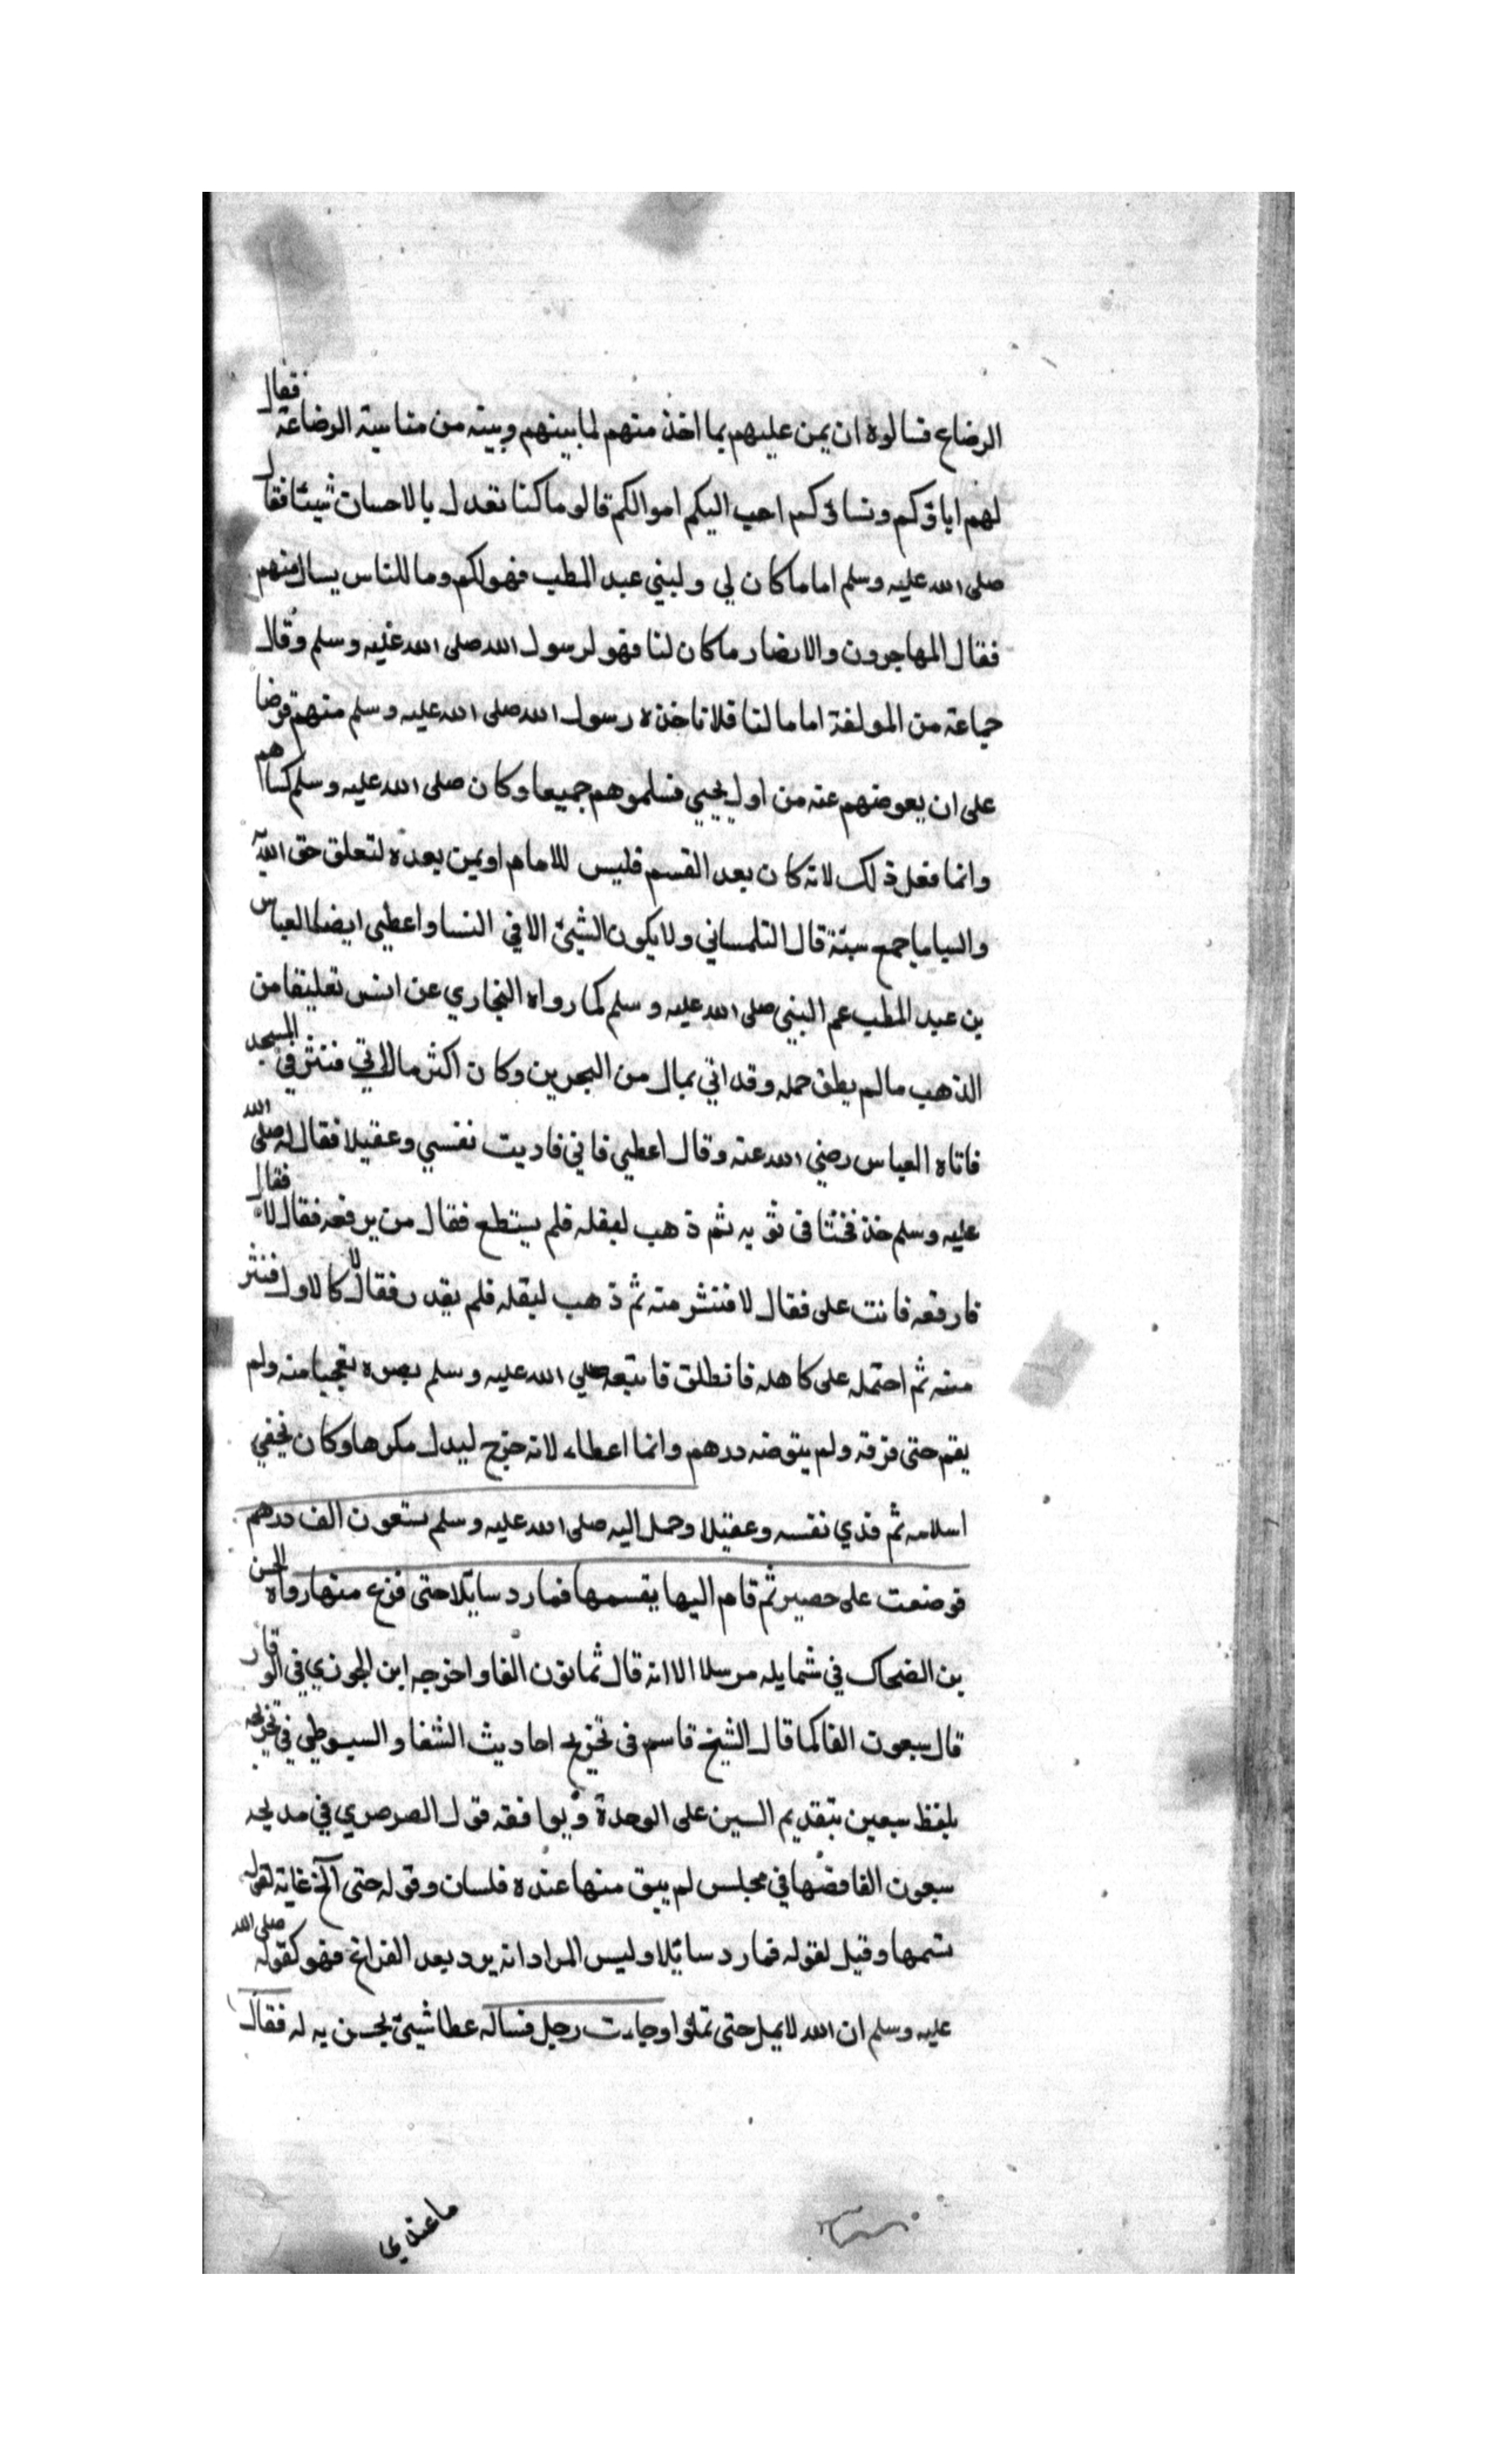 الرضاع فسالوه ان يمن عليهم بما اخذ منهم لما بينهم وبينه من مناسبة الرضاعة فقال
لهم اباؤكم ونساؤكم احب اليكم اموالكم قالو ما كنا نعدل بالاحسان شيئا فقال
صلى الله عليه وسلم اما ما كان لي ولبني عبد المطب فهو لكم وما للناس يسال منهم
فقال المهاجرون والانصار ما كان لنا فهو لرسول الله صلى الله عليه وسلم وقال
جماعة من المولفة اما ما لنا فلا ناخذه رسول الله صلى الله عليه وسلم منهم قرضا
على ان يعوضهم عنه من اول يجيى فسلموهم جميعا وكان صلى الله عليه وسلم كساهم
وانما فعل ذلك لانه كان بعد القسم فليس للامام او يمن بعده لتعلق حق الله
والسبايا جمع سبئة قال التلمساني ولا يكون الشيئ الا في النسا واعطي ايضا العباس
بن عبد المطب عم النبي صلى الله عليه وسلم كما رواه البخاري عن انس تعليقا من
الذهب ما لم يطق حمله وقد اتي بمال من البحرين وكان اكثر مال اتي فنثر في المسجد
فاتاه العباس رضي الله عنه وقال اعطي فاني فاديت نفسي وعقيلا فقال له صلى الله
عليه وسلم خذ فحثا فى ثوبه ثم ذهب ليقله فلم يستطع فقال من يرفعه فقال لا فقال
فارفعه فانت على فقال لا فنثر منه ثم ذهب ليقله فلم يقدر فقال لا كالاول فنثر
منه ثم احتمله على كاهله فانطلق فاتبعه صلي الله عليه وسلم بصره تعجبا منه ولم
يقم حتى فرقه ولم يتوضه درهم وانما اعطاء لانه خرج لبدل مكرها وكان يخفي
اسلامه ثم فدي نفسه وعقيلا وحمل اليه صلى الله عليه وسلم ستعون الف درهم
فوضعت على حصير ثم قام اليها يقسمها فما رد سائلا حتى فرغ منها رواه الحسن
بن الضحاك في شمايله مرسلا الا انه قال ثمانون الفا واخرجه ابن الجوزي في الوفا
قال سبعون الفا كما قال الشيخ قاسم فى تخريج احاديث الشفا والسيوطي في تخريجه
بلفظ سبعين بتقديم السين على الوحدة ويوافقه قول الصرصري في مديحه
سبعون الفا فضها في مجلس لم يبق منها عنده فلسان وقوله حتى الخ غاية لقوله
نسمها وقيل لقوله فما رد سائلا وليس المراد انه يرد بعد الفراغ فهو كقوله صلى الله
عليه وسلم ان الله لا يمل حتى تملوا وجاءت رجل فساله عطا شيئ يحسن به له فقال
ما عندي